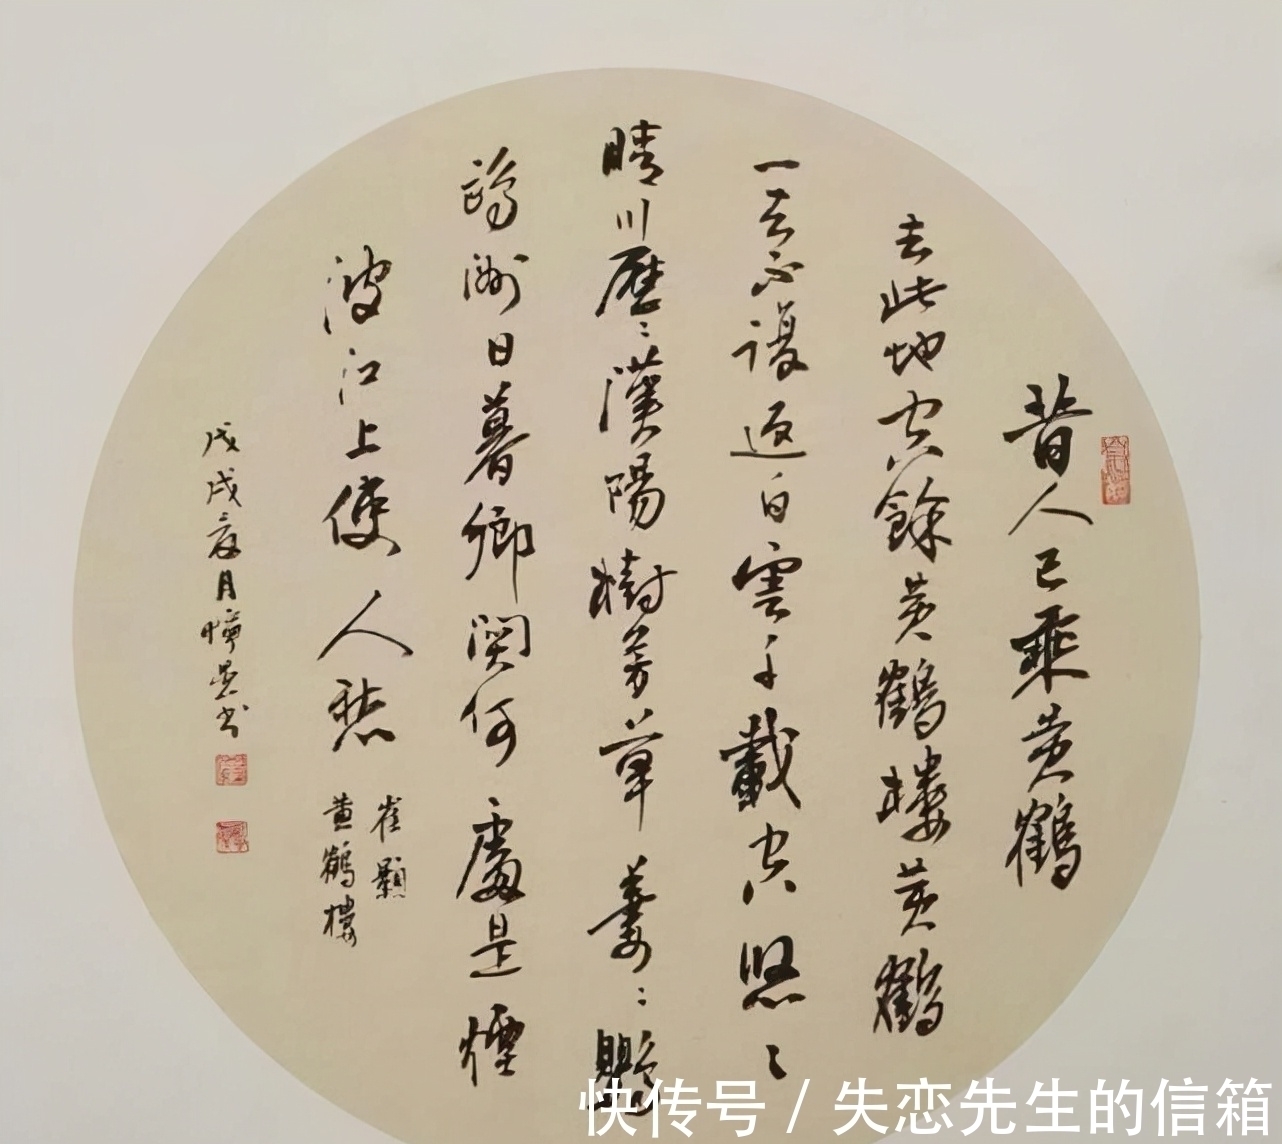 昔人已乘黄鶴
去此地空餘黄鶴樓黄鶴
一去不復返白雲千載空悠〻
晴川歷〻漢陽樹芳草萋〻鸚
鵡洲日暮鄉関何處是煙
波江上使人愁
崔顥
黄鶴樓
戊戌夏月
書
快传号 / 失恋先生的信箱